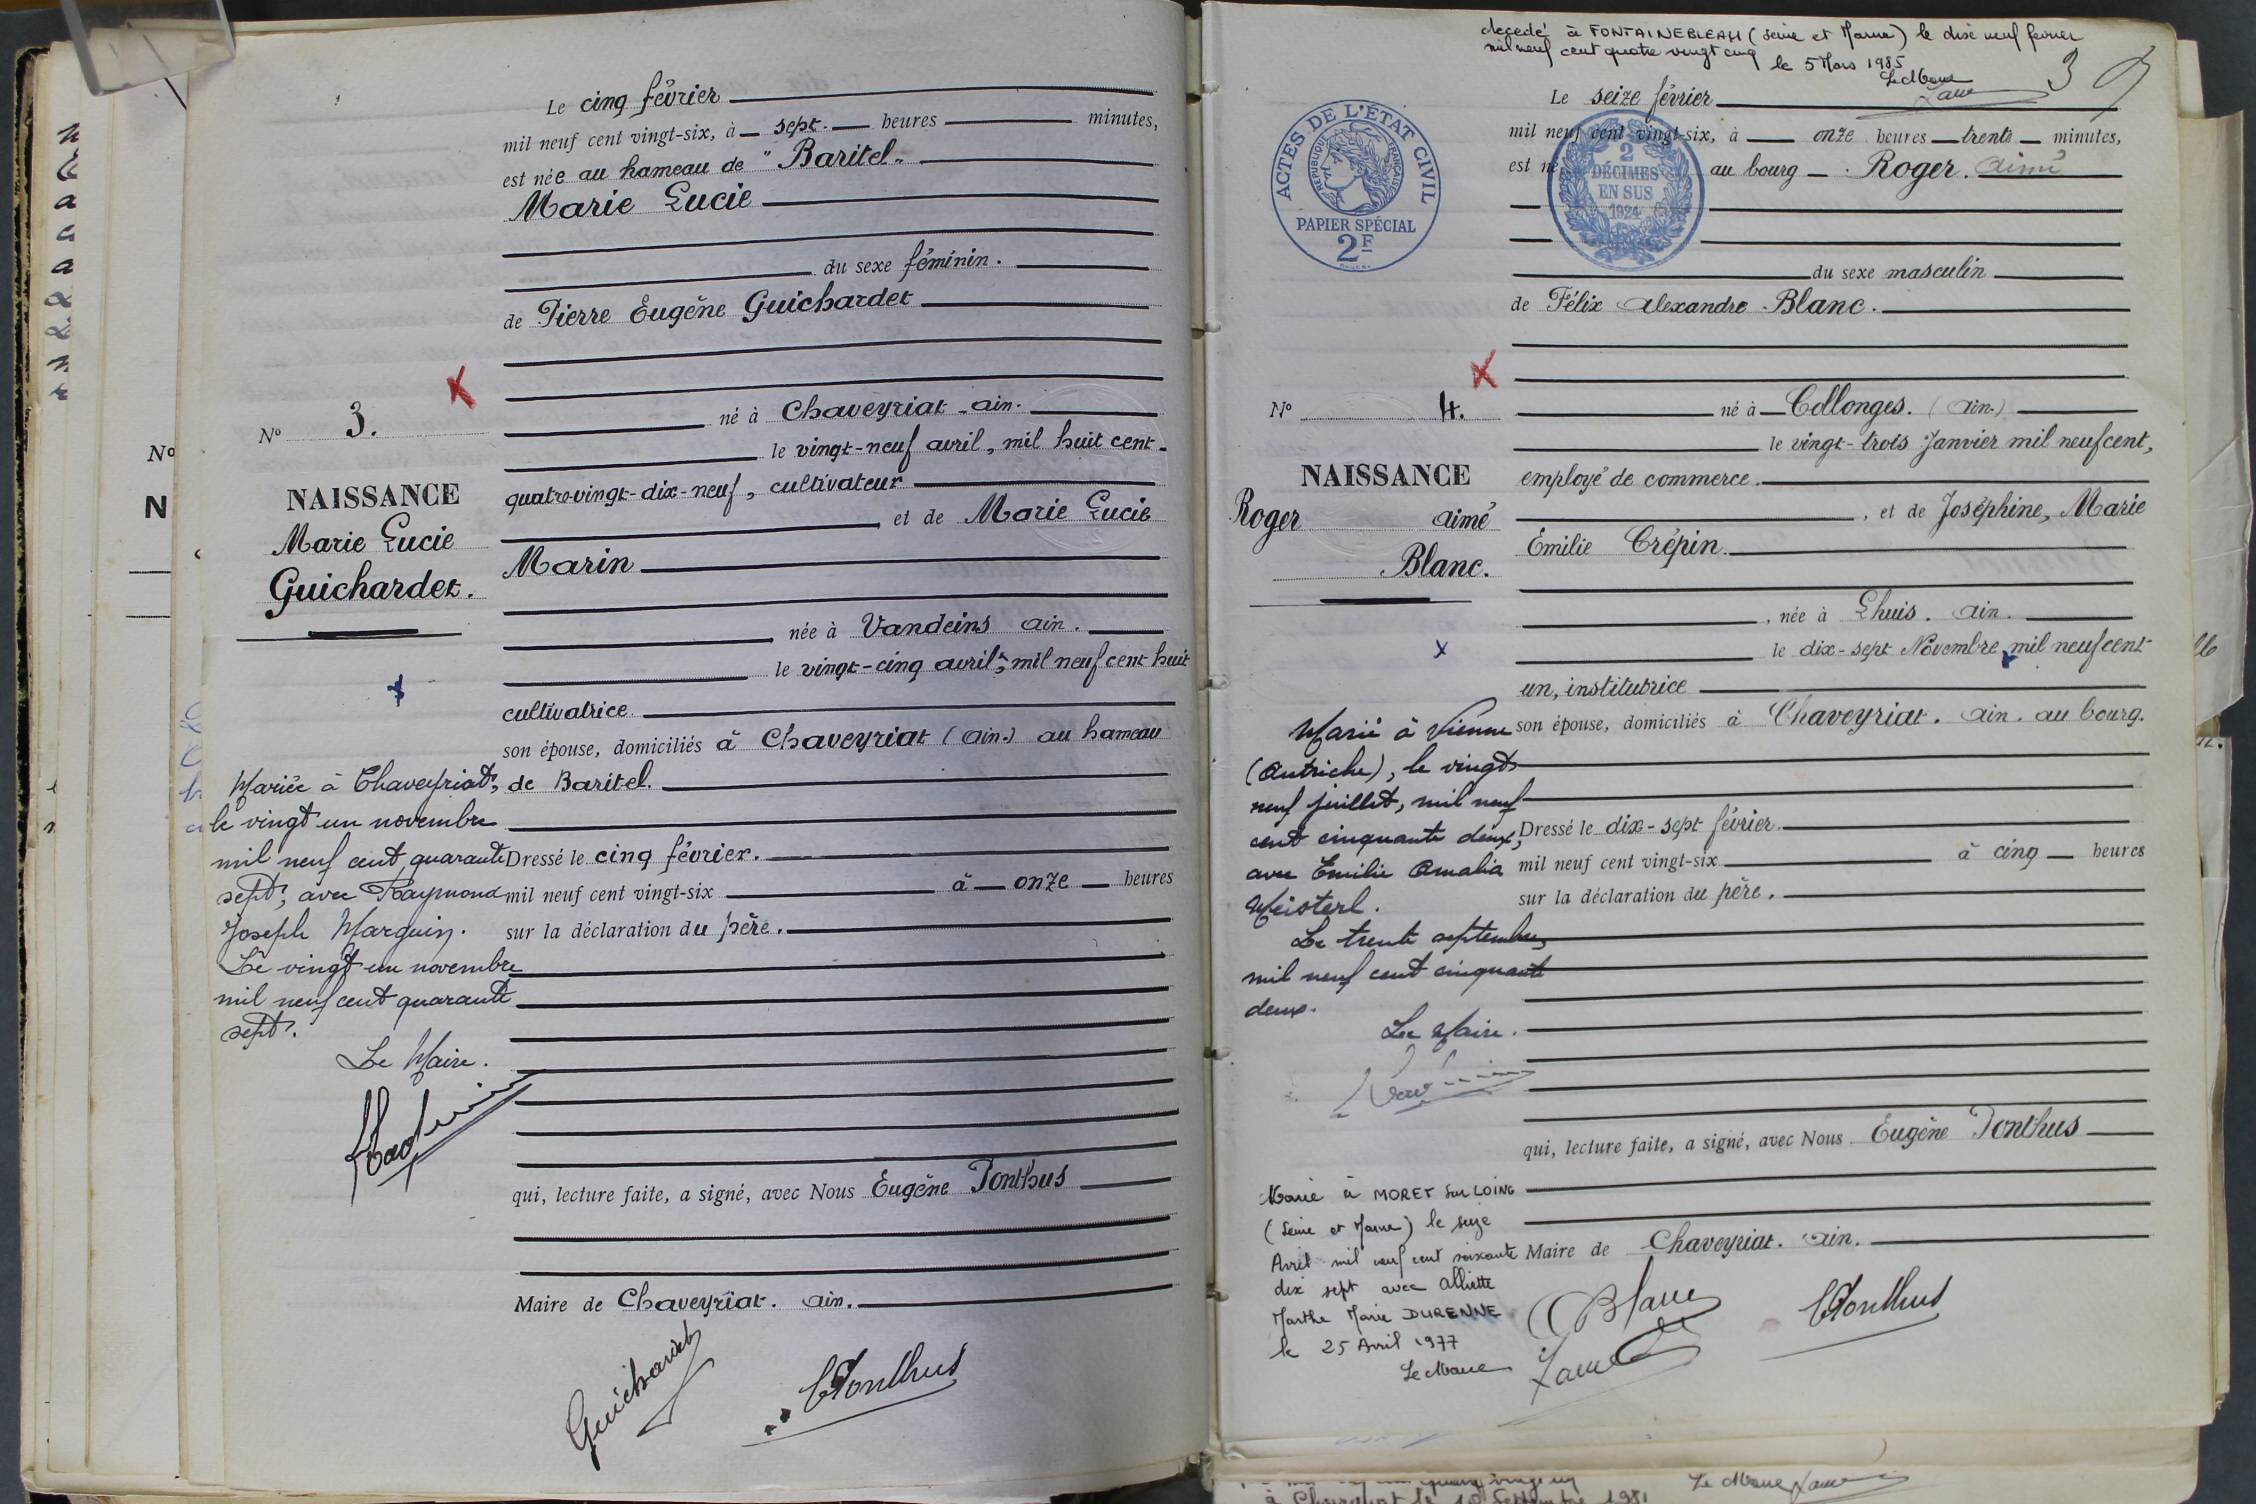 Le cinq février
mil neuf cent vingt-six, à sept heures minutes,
est née au hameau de "Baritel"
Marie Lucie
du sexe féminin.
de Pierre Eugène Guichardet
né à Chaveyriat - Ain.
le vingt-neuf avril, mil huit cent-
quatre-vingt-dix-neuf, cultivateur
, et de Marie Lucie
Marin
née à Vandeins Ain.
le vingt-cinq avril, mil neuf cent huit
cultivatrice
son épouse, domiciliés à Chaveyriat (Ain.) au hameau
de Baritel.
Dressé le cinq février.
mil neuf cent vingt-six à onze heures
sur la déclaration du père.
qui, lecture faite, a signé, avec Nous Eugène Ponthus
Maire de Chaveyriat. Ain.
Guichardet
Ponthus
N° 3.
NAISSANCE
Marie Lucie
Guichardet.
Mariée à Chaveyriat,
le vingt un novembre
mil neuf cent quarante
sept, avec Raymond
Joseph Marguin.
Le vingt un novembre
mil neuf cent quarante
sept.
Le Maire.
N°
N
décédé à FONTAINEBLEAU (Seine et Marne) le dix neuf fevrier
mil neuf cent quatre vingt cinq
le 5 Mars 1985
Le Maire
3
Le seize février
mil neuf cent vingt-six, à onze heures trente minutes,
est né au bourg Roger. Aimé
du sexe masculin
de Félix Alexandre Blanc.
né à Collonges. (Ain.)
le vingt-trois Janvier mil neuf cent,
employé de commerce.
, et de Joséphine, Marie
Émilie Crépin.
, née à Lhuis. Ain.
le dix-sept Novembre, mil neuf cent-
un, institutrice
son épouse, domiciliés à Chaveyriat. Ain. au bourg.
Dressé le dix-sept février.
mil neuf cent vingt-six à cinq heures
sur la déclaration du père.
qui, lecture faite, a signé, avec Nous Eugène Ponthus
Maire de Chaveyriat. Ain.
Blanc
Ponthus
ACTES DE L'ÉTAT CIVIL
RÉPUBLIQUE FRANÇAISE
PAPIER SPÉCIAL
2F
2
DÉCIMES
EN SUS
1924
N° 4.
NAISSANCE
Roger Aimé
Blanc.
Marié à Vienne
(Autriche), le vingt
neuf juillet, mil neuf
cent cinquante deux,
avec Emilie Amalia
Meisterl.
Le trente septembre
mil neuf cent cinquante
deux.
Le Maire.
Marié à MORET sur LOING
(Seine et Marne) le seize
Avril mil neuf cent soixante
dix sept avec Alliette
Marthe Marie DURENNE
le 25 Avril 1977
Le Maire
Le Maire